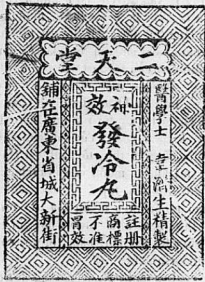 二天堂
醫學士 韋生精製
神效
發冷丸
註冊
商標
不准
冒效
舖在廣東省城大新街